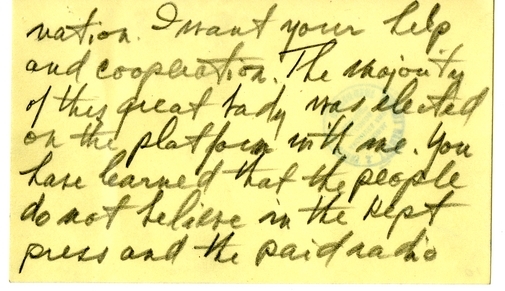 nation. I want your help
and cooperation. The majority
of this great body was elected
on the platform with me. You
have learned that the people
do not believe in the kept
press and the paid radio